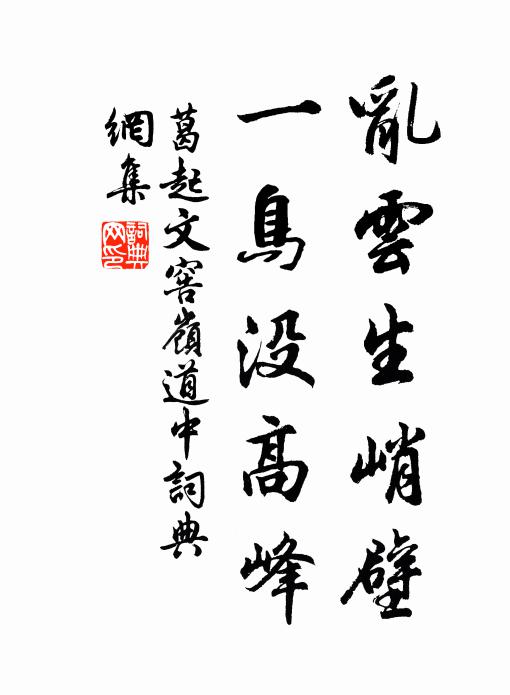 亂雲生峭壁
一鳥没高峰
葛起文窖嶺道中詞典
網集
詞典
网印